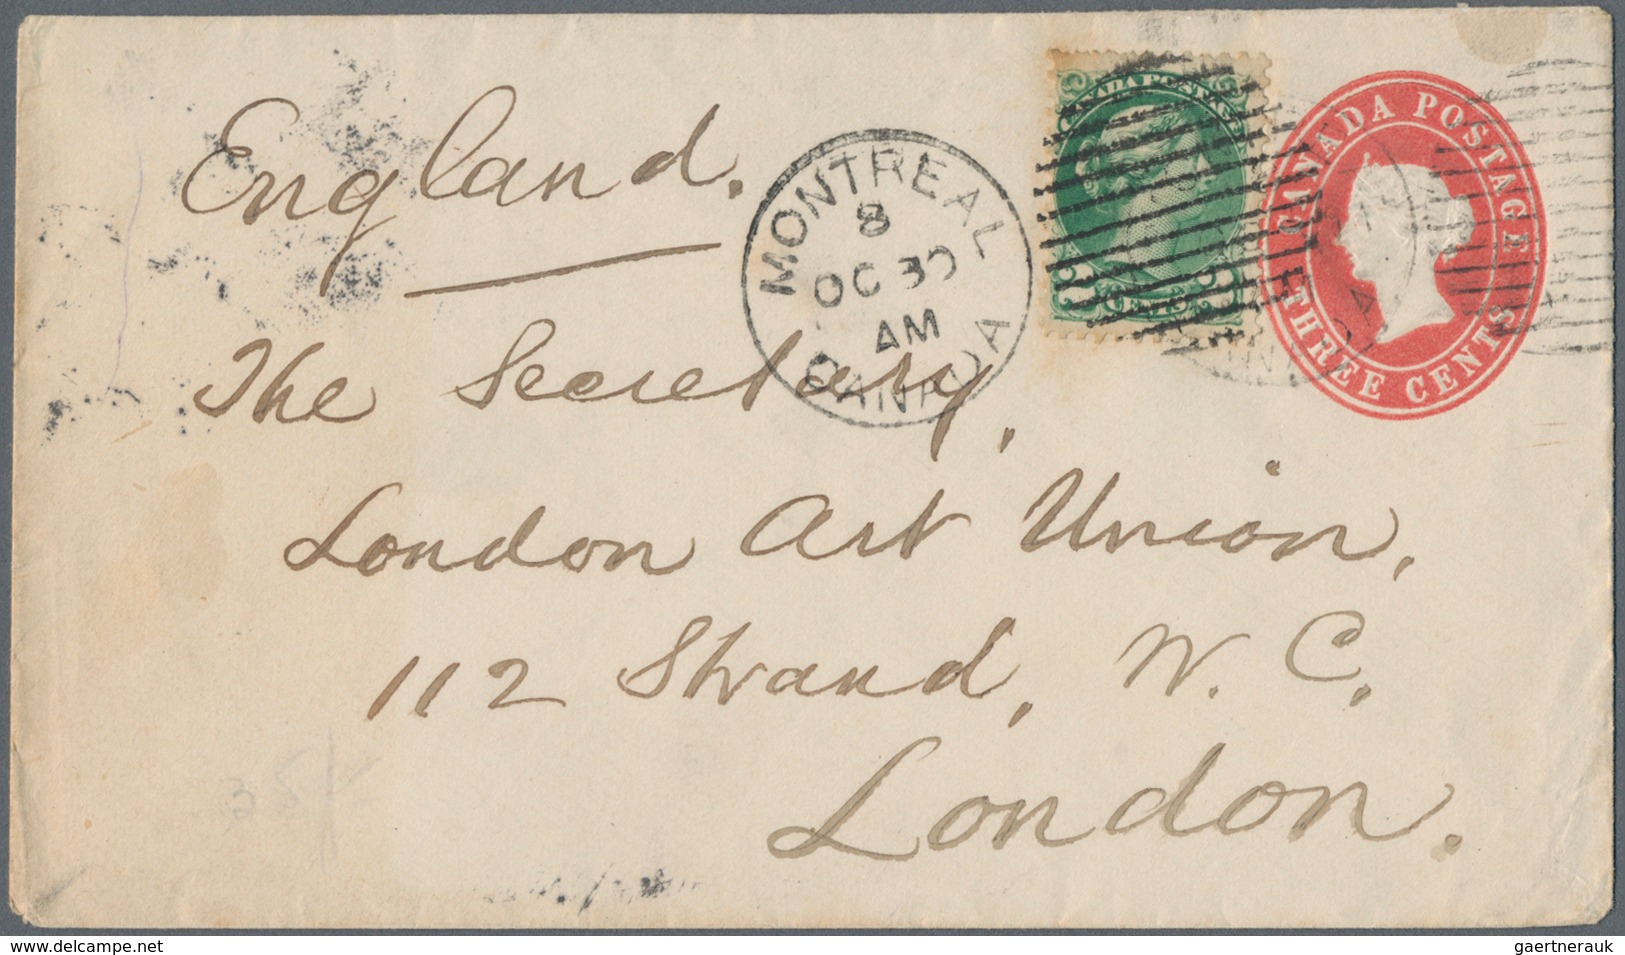 England.
The Secretary,
London Art Union,
112 Strand, W. C.
London.
MONTREAL
8
OC 30
AM
CANADA
CANADA POSTAGE
2 CENTS 2
CANADA POSTAGE
THREE CENTS
www.delcampe.net
gaertnerauk